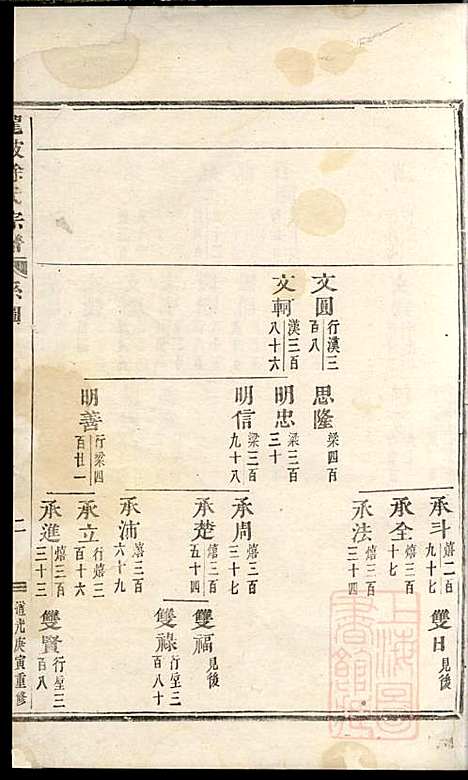 文圓 行漢三百八
文軻 漢三百八十六
思隆 梁四百
明忠 梁三百三十
明信 梁三百九十八
明善 行梁四百廿一
承斗 嬉二百九十七
承全 嬉三百十七
承法 嬉三百三十四
承周 嬉三百三十七
承楚 嬉三百五十四
承沛 嬉三百六十九
承立 行嬉二百十六
承進 嬉三百三十三
雙日 見後
雙福 見後
雙祿 行堊三百八十
雙賢 行堊三百八
龍坡徐氏宗譜
系圖
二
道光庚寅重修
上海圖書館藏